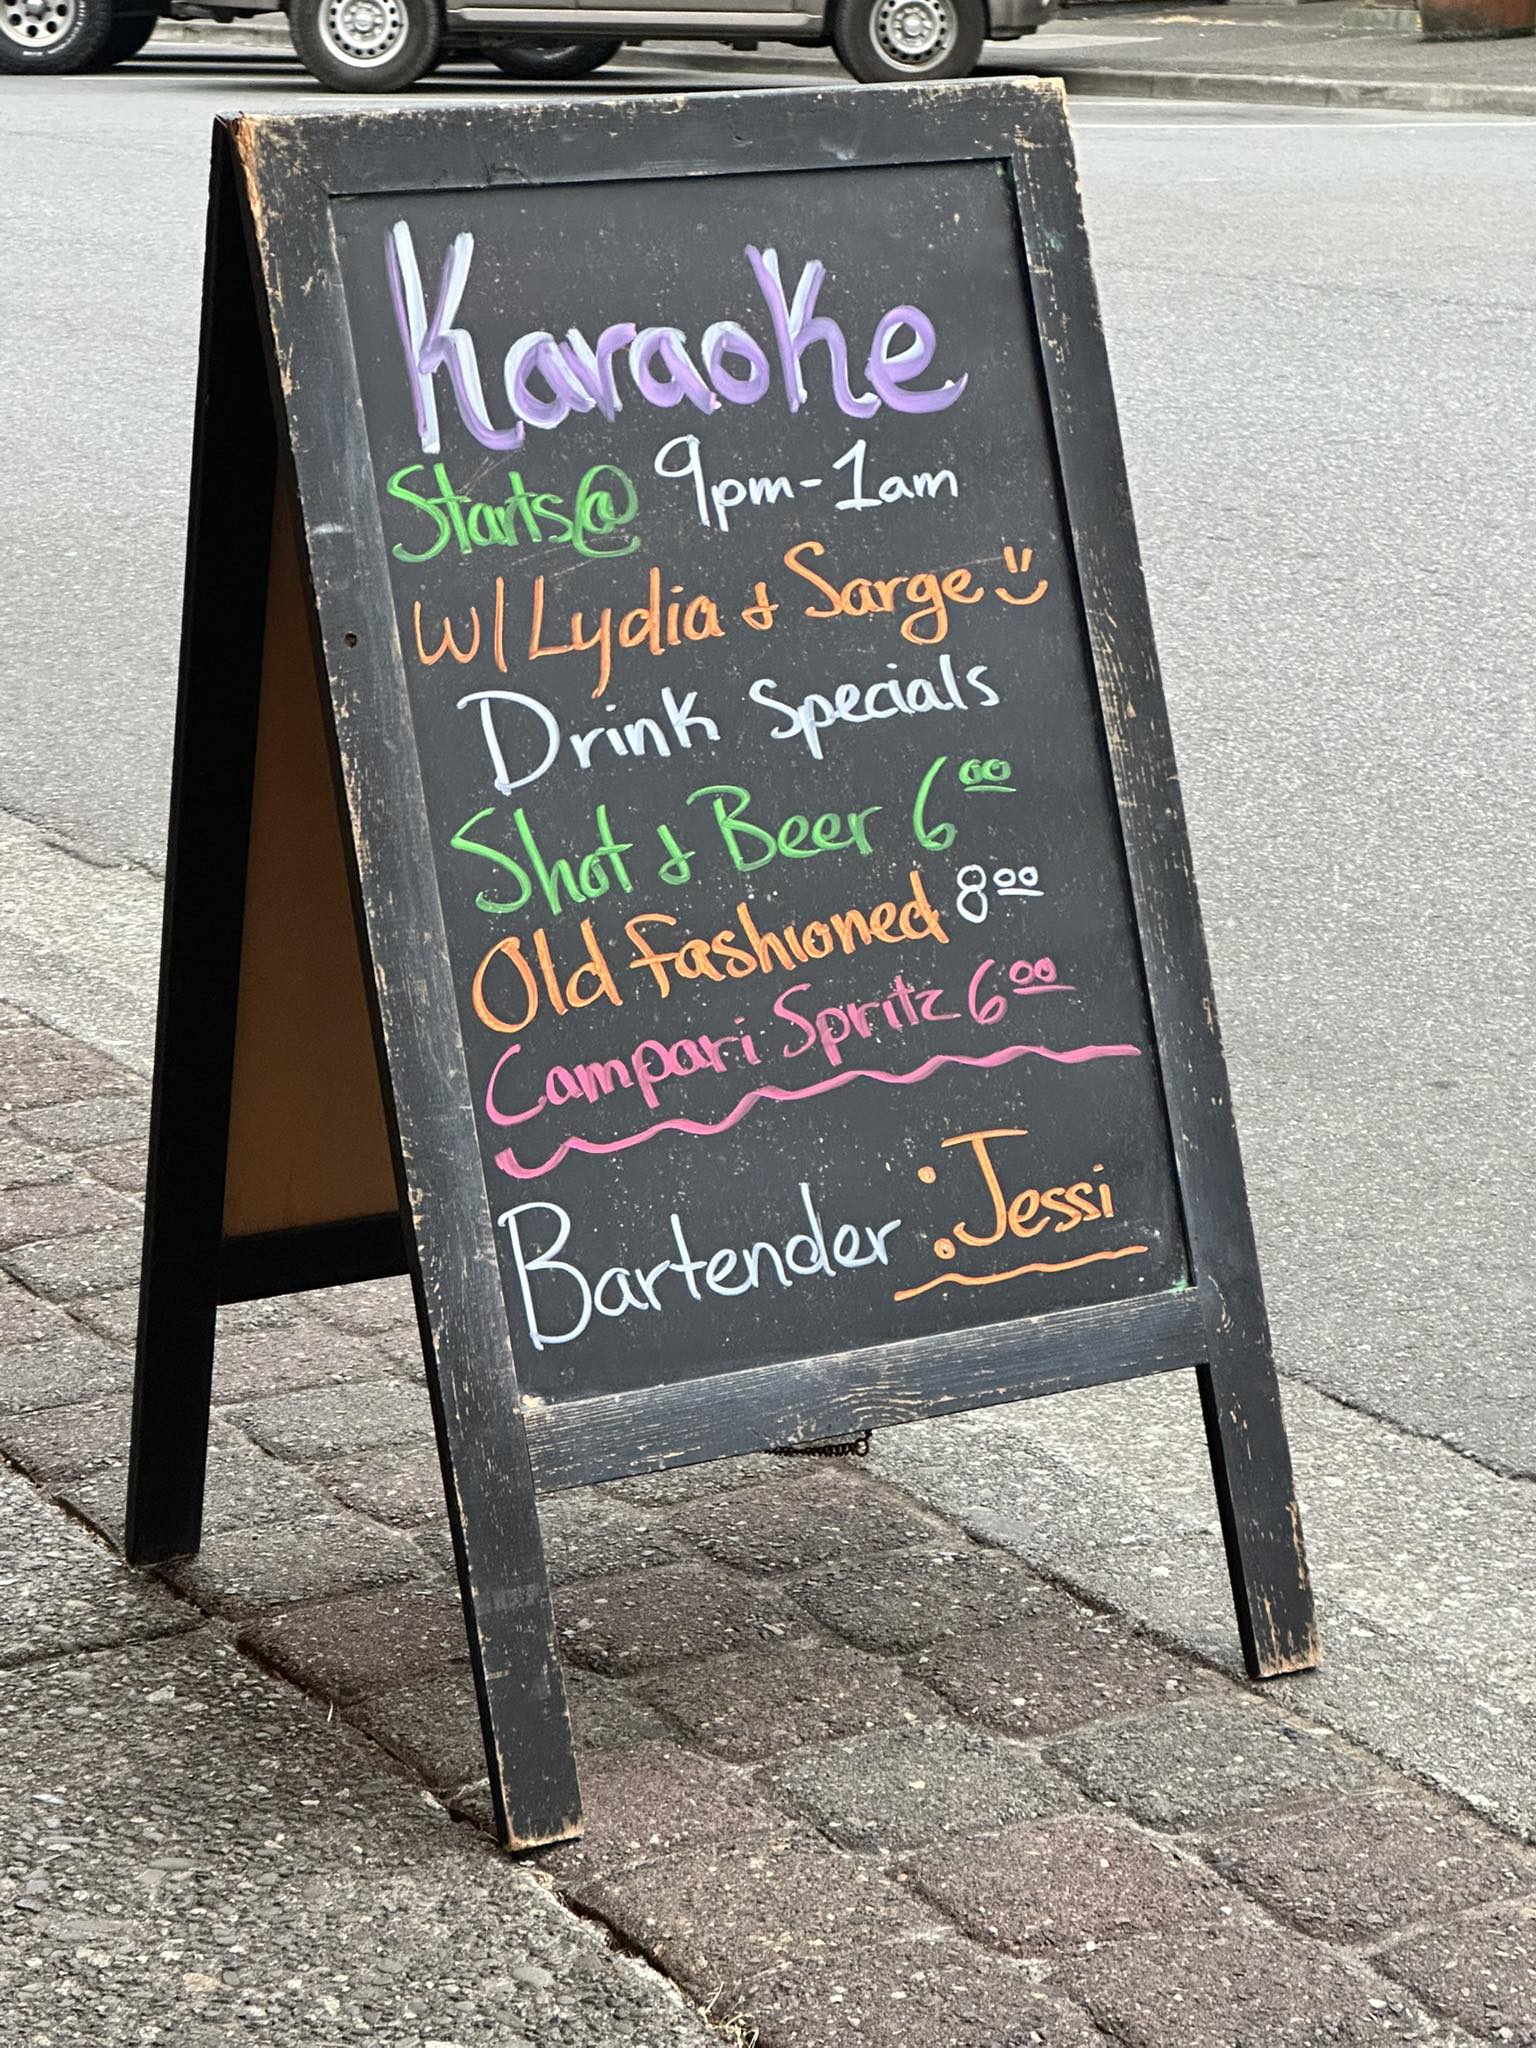 Karaoke
Starts@ 9pm-1am
w/ Lydia & Sarge
Drink Specials
Shot & Beer 6⁰⁰
Old Fashioned 8⁰⁰
Campari Spritz 6⁰⁰
Bartender : Jessi